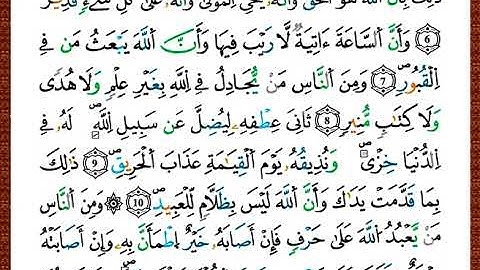 ذَٰلِكَ بِأَنَّ ٱللَّهَ هُوَ ٱلْحَقُّ وَأَنَّهُۥ يُحْىِ ٱلْمَوْتَىٰ وَأَنَّهُۥ عَلَىٰ كُلِّ شَىْءٍ قَدِيرٌ
٦ وَأَنَّ ٱلسَّاعَةَ ءَاتِيَةٌ لَّا رَيْبَ فِيهَا وَأَنَّ ٱللَّهَ يَبْعَثُ مَن فِى
ٱلْقُبُورِ ٧ وَمِنَ ٱلنَّاسِ مَن يُجَٰدِلُ فِى ٱللَّهِ بِغَيْرِ عِلْمٍ وَلَا هُدًى
وَلَا كِتَٰبٍ مُّنِيرٍ ٨ ثَانِىَ عِطْفِهِۦ لِيُضِلَّ عَن سَبِيلِ ٱللَّهِ ۖ لَهُۥ فِى
ٱلدُّنْيَا خِزْىٌ ۖ وَنُذِيقُهُۥ يَوْمَ ٱلْقِيَٰمَةِ عَذَابَ ٱلْحَرِيقِ ٩ ذَٰلِكَ
بِمَا قَدَّمَتْ يَدَاكَ وَأَنَّ ٱللَّهَ لَيْسَ بِظَلَّٰمٍ لِّلْعَبِيدِ ١٠ ۞ وَمِنَ ٱلنَّاسِ
مَن يَعْبُدُ ٱللَّهَ عَلَىٰ حَرْفٍ فَإِنْ أَصَابَهُۥ خَيْرٌ ٱطْمَأَنَّ بِهِۦ وَإِنْ أَصَابَتْهُ